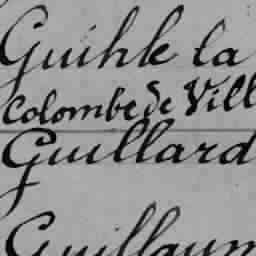 Guihle la
Colombe de Vill
Guillard
Guillaum